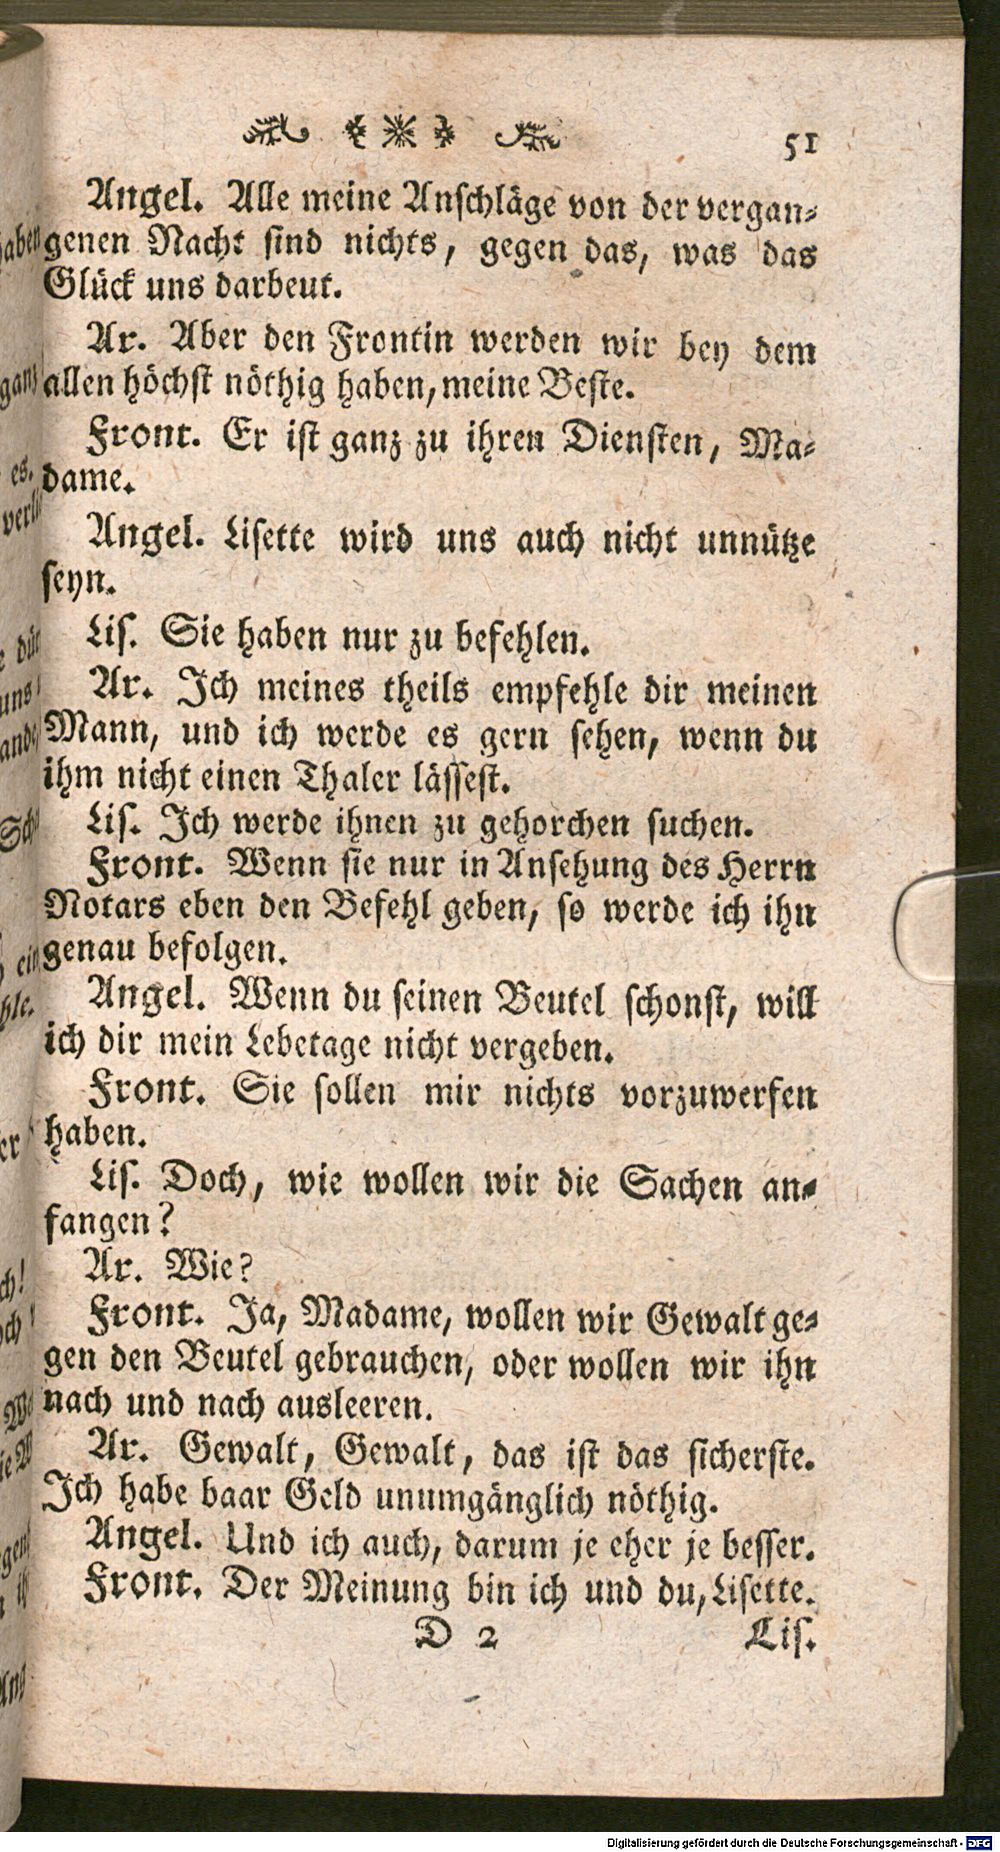 51
Angel. Alle meine Anschläge von der vergan-
genen Nacht sind nichts, gegen das, was das
Glück uns darbeut.
Ar. Aber den Frontin werden wir bey dem
allen höchst nöthig haben, meine Beste.
Front. Er ist ganz zu ihren Diensten, Ma-
dame.
Angel. Lisette wird uns auch nicht unnütze
seyn.
Lis. Sie haben nur zu befehlen.
Ar. Ich meines theils empfehle dir meinen
Mann, und ich werde es gern sehen, wenn du
ihm nicht einen Thaler lässest.
Lis. Ich werde ihnen zu gehorchen suchen.
Front. Wenn sie nur in Ansehung des Herrn
Notars eben den Befehl geben, so werde ich ihn
genau befolgen.
Angel. Wenn du seinen Beutel schonst, will
ich dir mein Lebetage nicht vergeben.
Front. Sie sollen mir nichts vorzuwerfen
haben.
Lis. Doch, wie wollen wir die Sachen an-
fangen?
Ar. Wie?
Front. Ja, Madame, wollen wir Gewalt ge-
gen den Beutel gebrauchen, oder wollen wir ihn
nach und nach ausleeren.
Ar. Gewalt, Gewalt, das ist das sicherste.
Ich habe baar Geld unumgänglich nöthig.
Angel. Und ich auch, darum je eher je besser.
Front. Der Meinung bin ich und du, Lisette.
D 2 Lis.
Digitalisierung gefördert durch die Deutsche Forschungsgemeinschaft - DFG